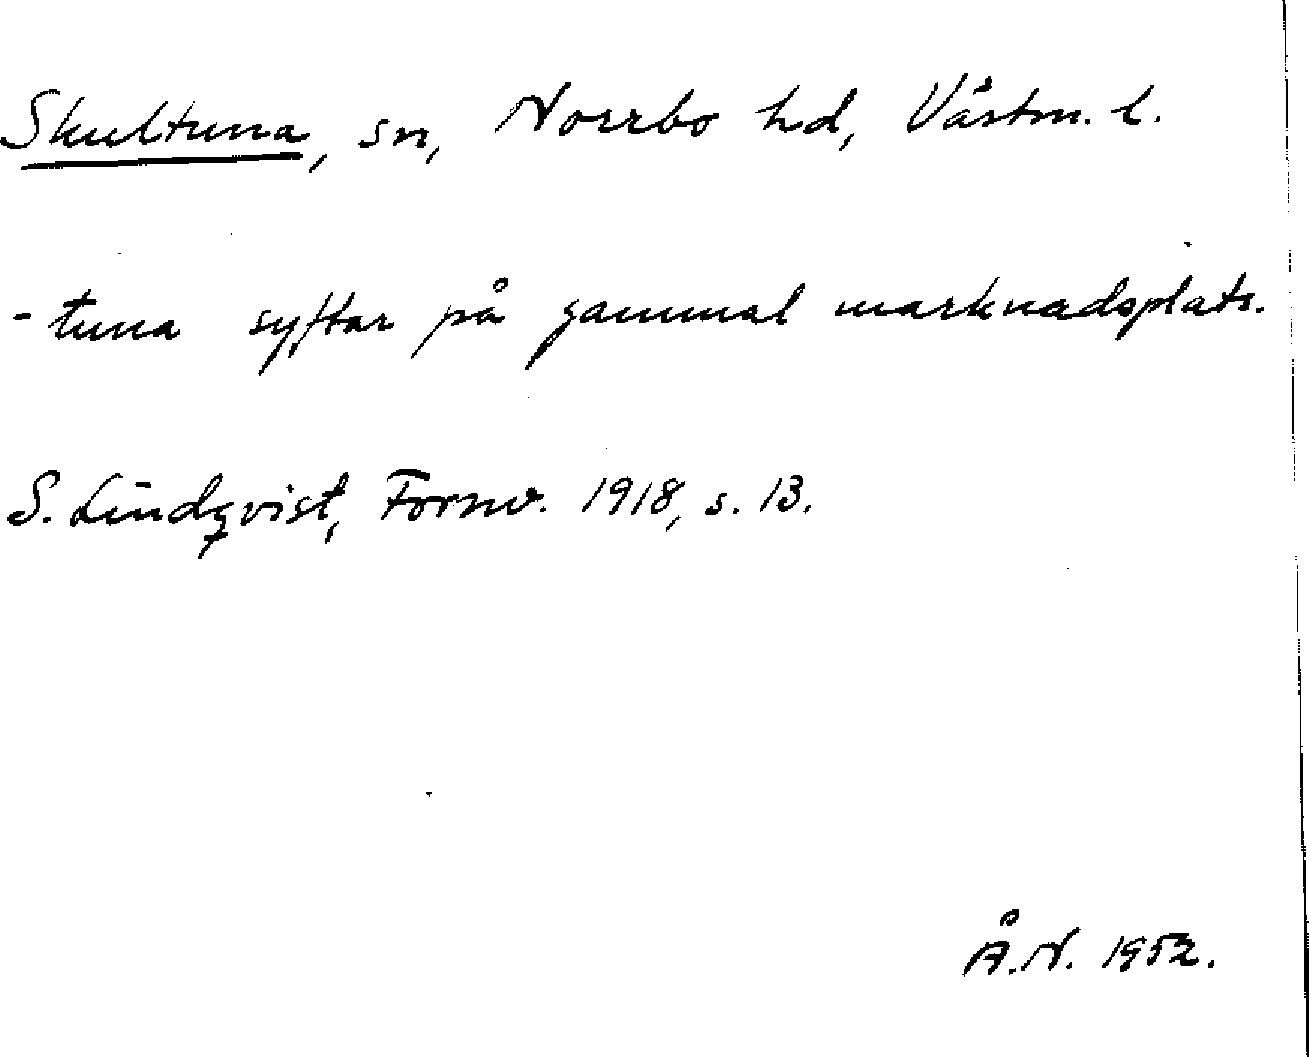 Skultuna, sn, Norrbo hd, Västm. l.
-tuna syftar på gammal marknadsplats.
S. Lindqvist, Fornv. 1918, s. 13.
Å.N. 1952.